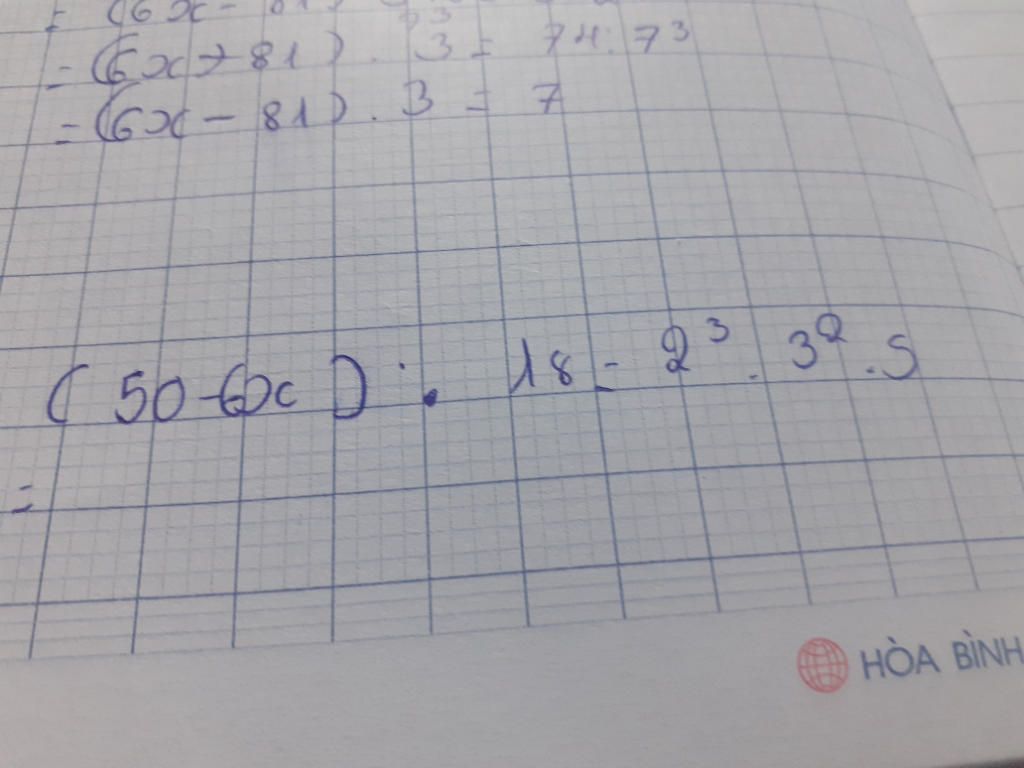 = (6x -
= (6x - 81) . 3 = 74 : 7³
= (6x - 81) . 3 = 7
(50 - 6x) . 18 = 2³ . 3² . 5
=
HÒA BÌNH